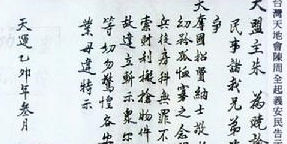 台灣天地會陳周全起義安民告示
大盟主朱 為曉諭
民事諸我兄弟
爭
天奪國招賢納士
幼矜孤恤寡之念
兵往 無罪不
索財利搬搶物件
故違立斬示眾爾
等切勿驚惶各
業毋違特示
天運乙卯年叁月